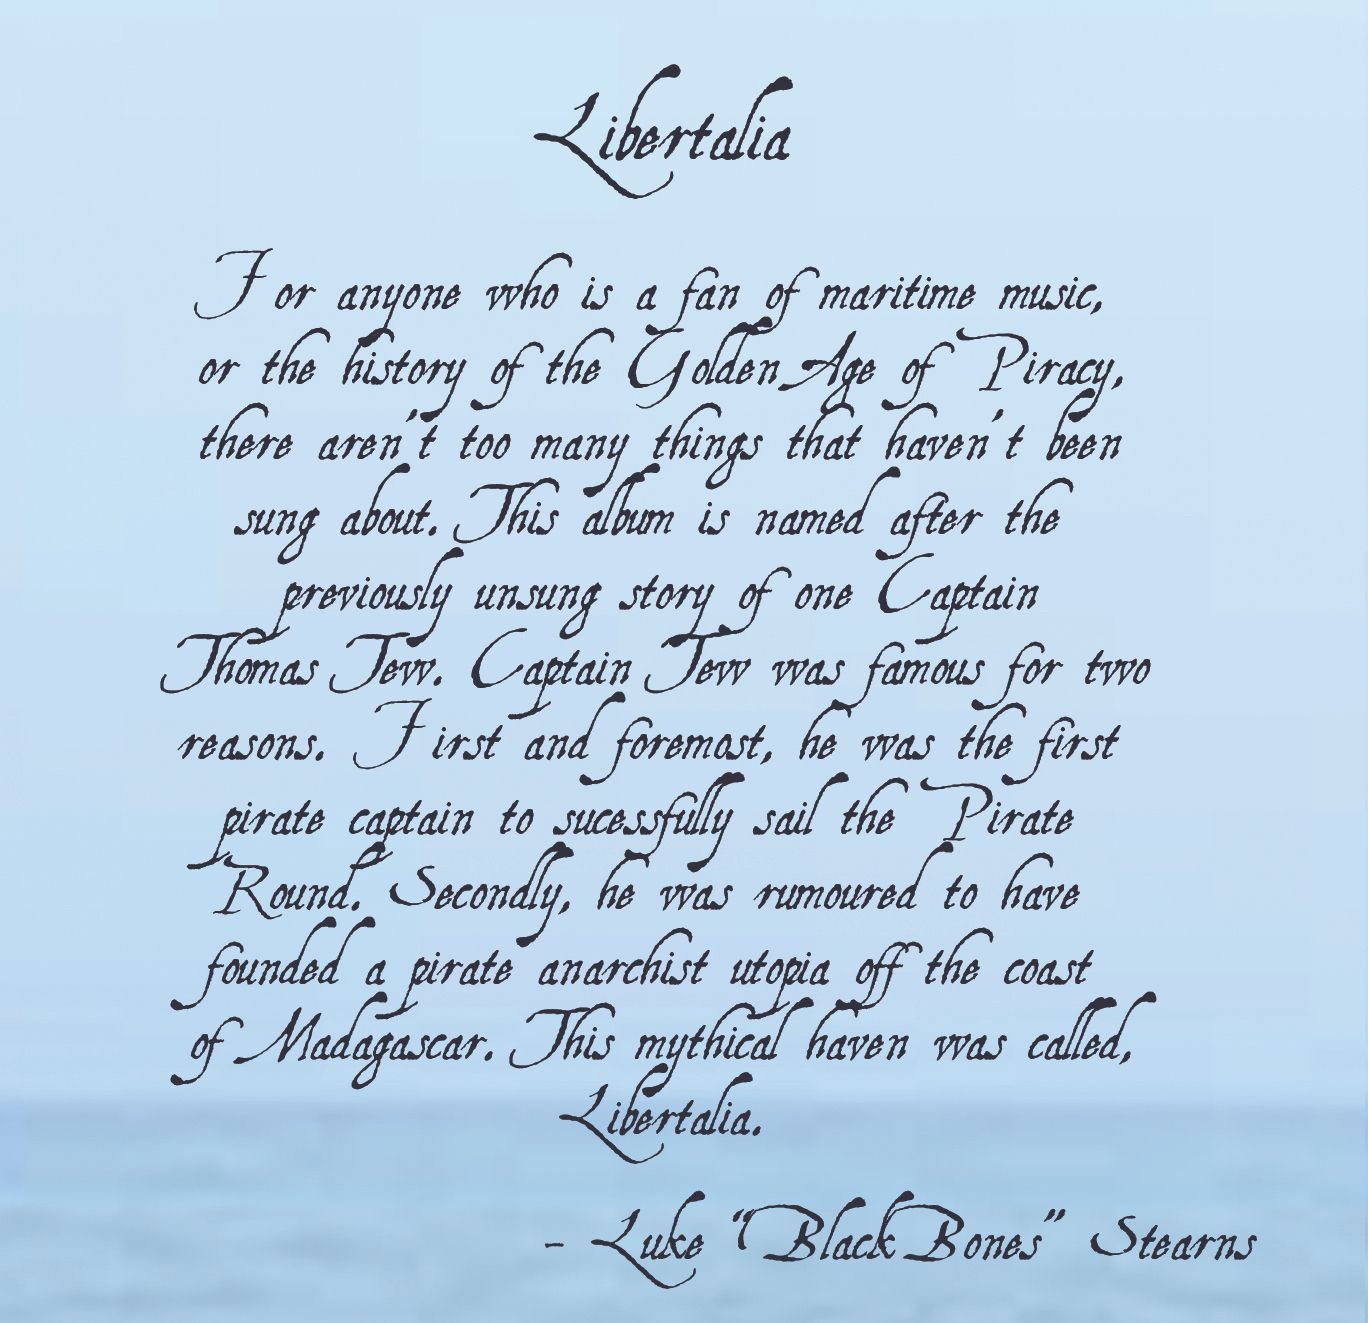 Libertalia
For anyone who is a fan of maritime music,
or the history of the Golden Age of Piracy,
there aren't too many things that haven't been
sung about. This album is named after the
previously unsung story of one Captain
Thomas Tew. Captain Tew was famous for two
reasons. First and foremost, he was the first
pirate captain to sucessfully sail the Pirate
Round. Secondly, he was rumoured to have
founded a pirate anarchist utopia off the coast
of Madagascar. This mythical haven was called,
Libertalia.
- Luke "BlackBones" Stearns